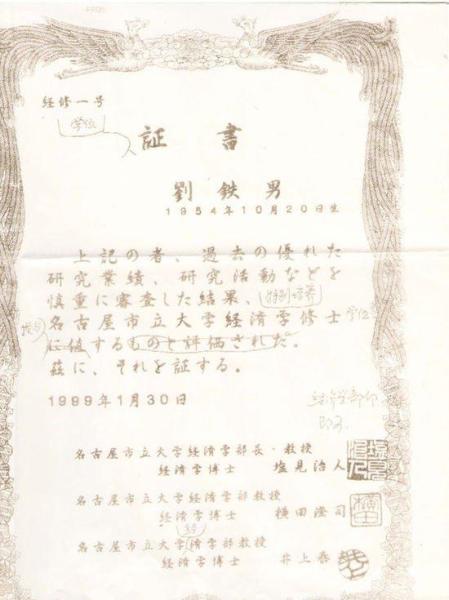 経修一号
学位
証書
劉鉄男
1954年10月20日生
上記の者、過去の優れた
研究業績、研究活動などを
慎重に審査した結果、
名古屋市立大学経済学修士 学位
に値するものと評価された。
茲に、それを証する。
1999年1月30日
名古屋市立大学経済学部長・教授
経済学博士 塩見治人
名古屋市立大学経済学部教授
経済学博士 横田澄司
経
名古屋市立大学済学部教授
経済学博士 井上泰